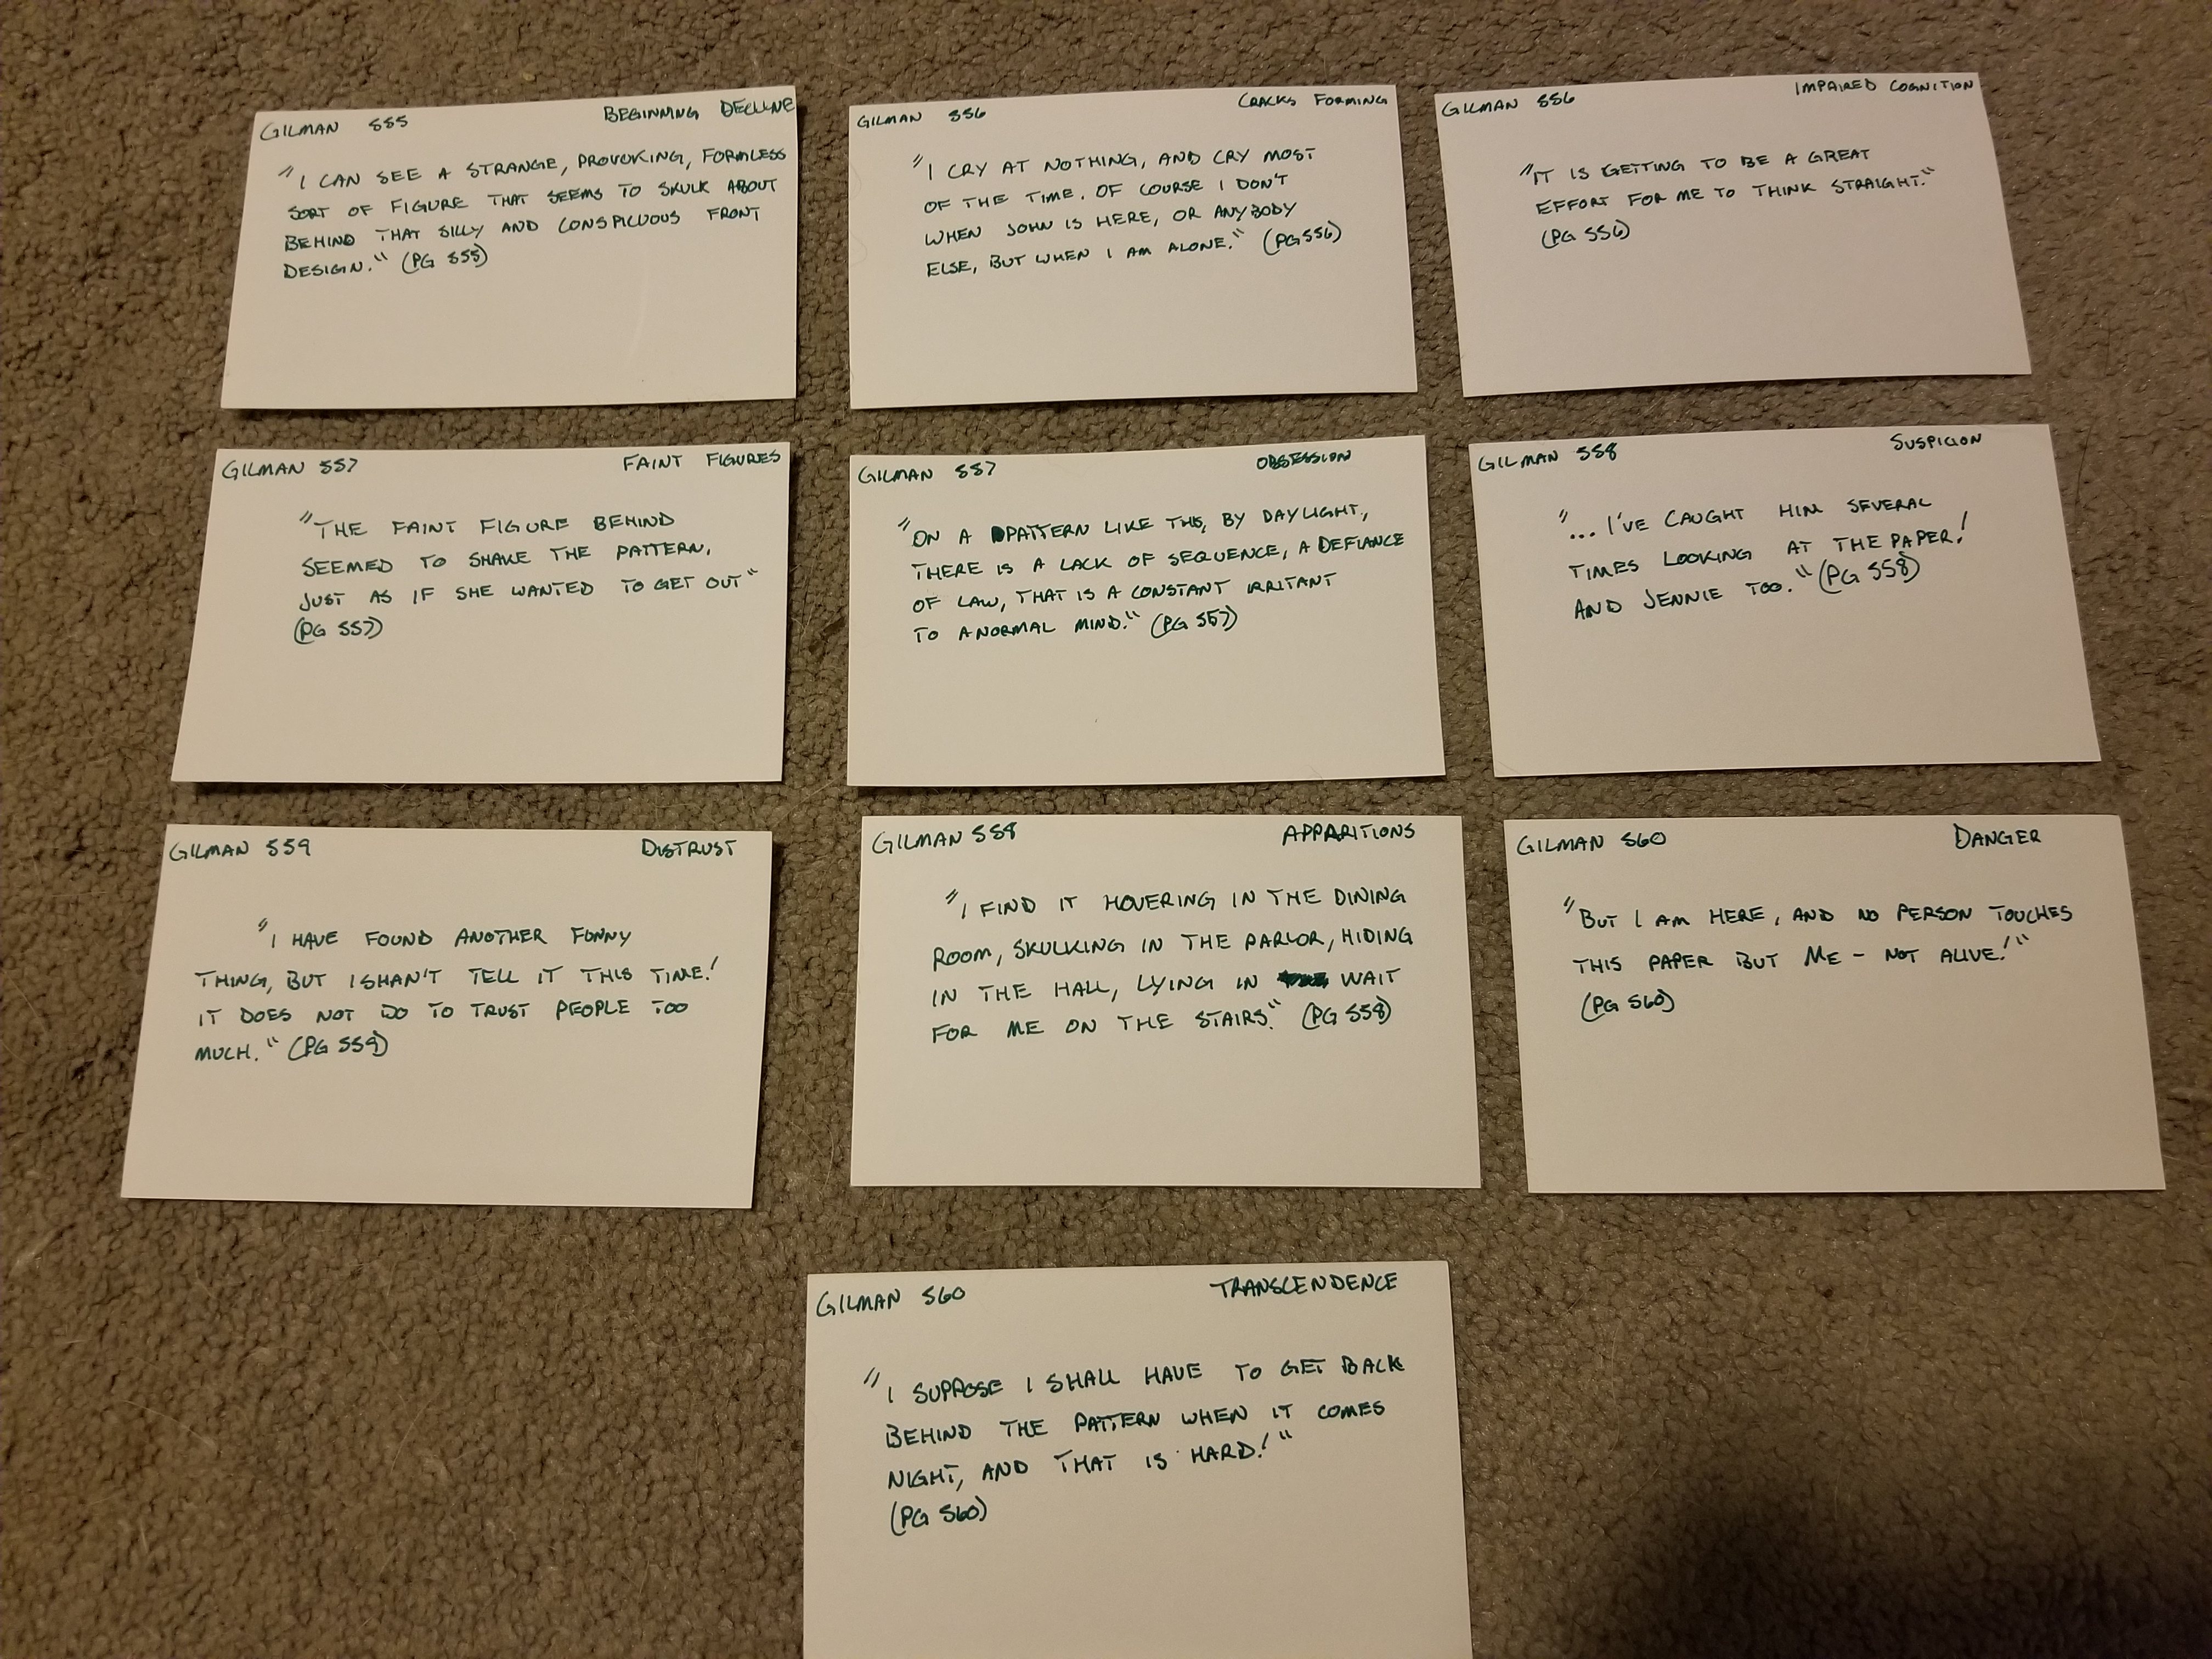 GILMAN 555 BEGINNING DECLINE
"I CAN SEE A STRANGE, PROVOKING, FORMLESS
SORT OF FIGURE THAT SEEMS TO SKULK ABOUT
BEHIND THAT SILLY AND CONSPICUOUS FRONT
DESIGN." (PG 555)
GILMAN 556 CRACKS FORMING
"I CRY AT NOTHING, AND CRY MOST
OF THE TIME. OF COURSE I DON'T
WHEN JOHN IS HERE, OR ANYBODY
ELSE, BUT WHEN I AM ALONE." (PG 556)
GILMAN 556 IMPAIRED COGNITION
"IT IS GETTING TO BE A GREAT
EFFORT FOR ME TO THINK STRAIGHT."
(PG 556)
GILMAN 557 FAINT FIGURES
"THE FAINT FIGURE BEHIND
SEEMED TO SHAKE THE PATTERN,
JUST AS IF SHE WANTED TO GET OUT"
(PG 557)
GILMAN 557 OBSESSION
"ON A PATTERN LIKE THIS, BY DAYLIGHT,
THERE IS A LACK OF SEQUENCE, A DEFIANCE
OF LAW, THAT IS A CONSTANT IRRITANT
TO A NORMAL MIND." (PG 557)
GILMAN 558 SUSPICION
"... I'VE CAUGHT HIM SEVERAL
TIMES LOOKING AT THE PAPER!
AND JENNIE TOO." (PG 558)
GILMAN 559 DISTRUST
"I HAVE FOUND ANOTHER FUNNY
THING, BUT I SHAN'T TELL IT THIS TIME!
IT DOES NOT DO TO TRUST PEOPLE TOO
MUCH." (PG 559)
GILMAN 558 APPARITIONS
"I FIND IT HOVERING IN THE DINING
ROOM, SKULKING IN THE PARLOR, HIDING
IN THE HALL, LYING IN WAIT
FOR ME ON THE STAIRS." (PG 558)
GILMAN 560 DANGER
"BUT I AM HERE, AND NO PERSON TOUCHES
THIS PAPER BUT ME - NOT ALIVE!"
(PG 560)
GILMAN 560 TRANSCENDENCE
"I SUPPOSE I SHALL HAVE TO GET BACK
BEHIND THE PATTERN WHEN IT COMES
NIGHT, AND THAT IS HARD!"
(PG 560)